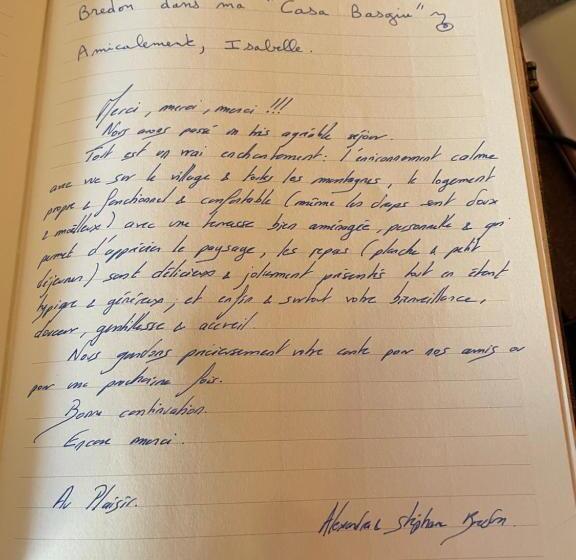 Bredon dans ma "Casa Basgiu"
Amicalement, Isabelle.
Merci, merci, merci !!!
Nous avons passé un très agréable séjour.
Tout est un vrai enchantement : l'environnement calme
avec vue sur le village & toutes les montagnes, le logement
propre & fonctionnel & confortable (même les draps sont doux
& moelleux) avec une terrasse bien aménagée, personnelle & qui
permet d'apprécier le paysage, les repas (planche & petit
déjeuner) sont délicieux & joliment présentés tout en étant
typique & généreux ; et enfin & surtout votre bienveillance,
douceur, gentillesse & accueil.
Nous gardons précieusement votre carte pour nos amis ou
pour une prochaine fois.
Bonne continuation.
Encore merci.
Au Plaisir.
Alexandra & Stéphane Bredon.